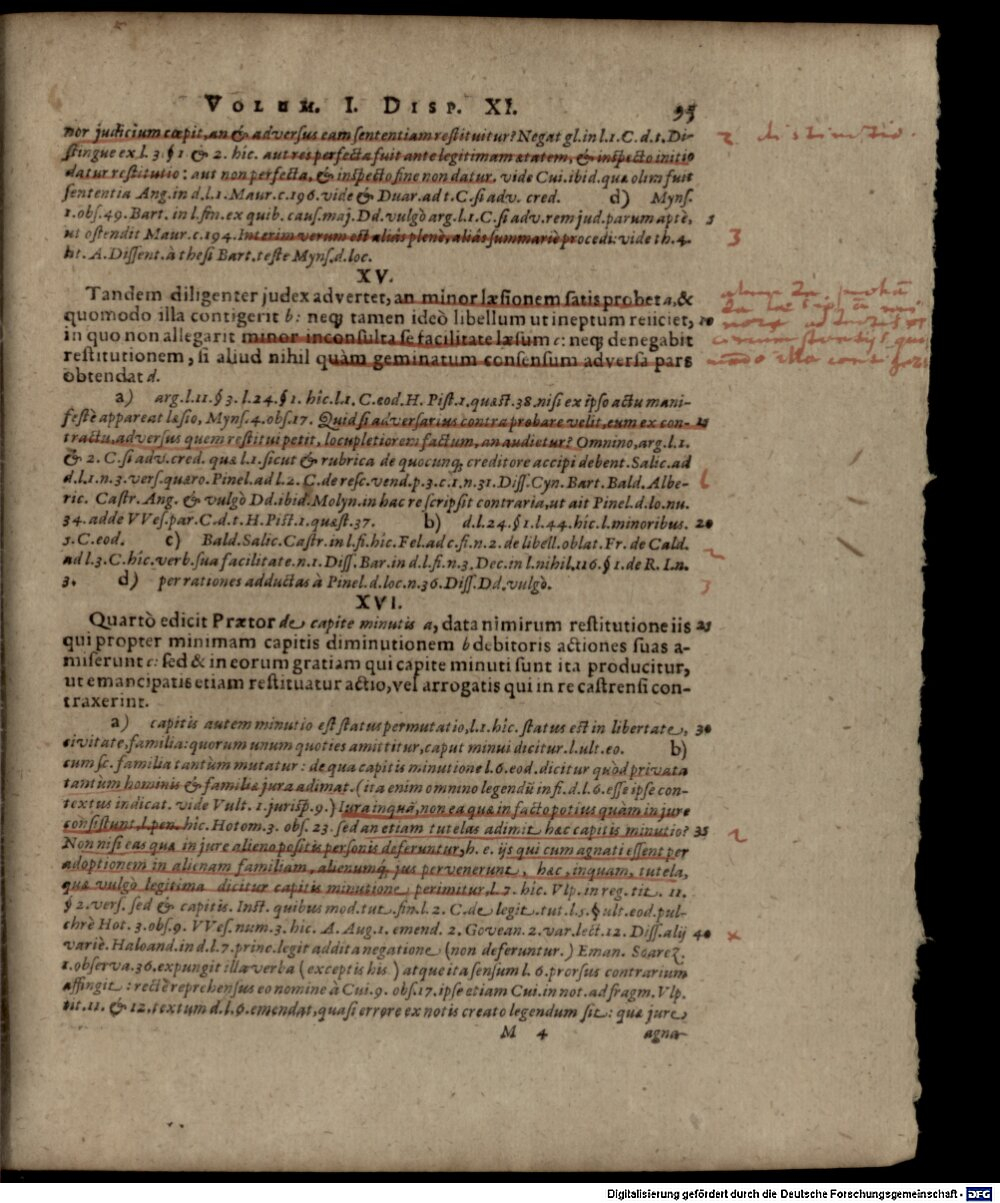 VOLUM. I. DISP. XI. 95
nor judicium cœpit, an & adversus eam sententiam restituitur? Negat gl. in l. 1. C. d. 1. Di-
stingue ex l. 3. § 1. & 2. hîc. aut res perfecta fuit ante legitimam ætatem, & inspecto initio
datur restitutio: aut non perfecta, & inspecto fine non datur. vide Cui. ibid. quæ olim fuit
sententia Ang. in d. l. 1. Maur. c. 196. vide & Duar. ad t. C. si adv. cred. d) Myns.
1. obs. 49. Bart. in l. fin. ex quib. caus. maj. Dd. vulgò arg. l. 1. C. si adv. rem jud. parum aptè, 5
ut ostendit Maur. c. 194. Interim verum est aliàs plenè, aliàs summariè procedi: vide th. 4.
ht. A. Dissent. à thesi Bart. teste Myns. d. loc.
XV.
Tandem diligenter judex advertet, an minor læsionem satis probet a, &
quomodo illa contigerit b: neq; tamen ideò libellum ut ineptum reiiciet, 10
in quo non allegarit minor inconsulta se facilitate læsum c: neq; denegabit
restitutionem, si aliud nihil quàm geminatum consensum adversa pars
obtendat d.
a) arg. l. 11. § 3. l. 24. § 1. hîc. l. 1. C. eod. H. Pist. 1. quæst. 38. nisi ex ipso actu mani-
festè appareat læsio, Myns. 4. obs. 17. Quid si adversarius contra probare velit, eum ex con- 15
tractu, adversus quem restitui petit, locupletiorem factum, an audietur? Omnino, arg. l. 1.
& 2. C. si adv. cred. quæ l. 1. sicut & rubrica de quocunq; creditore accipi debent. Salic. ad
d. l. 1. n. 3. vers. quæro. Pinel. ad l. 2. C. de resc. vend. p. 3. c. 1. n. 31. Diss. Cyn. Bart. Bald. Albe-
ric. Castr. Ang. & vulgò Dd. ibid. Molyn. in hac re scripsit contraria, ut ait Pinel. d. lo. nu.
34. adde VVes. par. C. d. t. H. Pist. 1. quæst. 37. b) d. l. 24. § 1. l. 44. hîc. l. minoribus. 20
5. C. eod. c) Bald. Salic. Castr. in l. fi. hîc. Fel. ad c. fi. n. 2. de libell. oblat. Fr. de Cald.
ad l. 3. C. hîc. verb. sua facilitate. n. 1. Diss. Bar. in d. l. fi. n. 3. Dec. in l. nihil. 116. § 1. de R. I. n.
3. d) per rationes adductas à Pinel. d. loc. n. 36. Diss. Dd. vulgò.
XVI.
Quartò edicit Prætor de capite minutis a, data nimirum restitutione iis 25
qui propter minimam capitis diminutionem b debitoris actiones suas a-
miserunt c: sed & in eorum gratiam qui capite minuti sunt ita producitur,
ut emancipatis etiam restituatur actio, vel arrogatis qui in re castrensi con-
traxerint.
a) capitis autem minutio est status permutatio, l. 1. hîc. status est in libertate, 30
civitate, familia: quorum unum quoties amittitur, caput minui dicitur. l. ult. eo. b)
cum sc. familia tantùm mutatur: de qua capitis minutione l. 6. eod. dicitur quòd privata
tantùm hominis & familiæ jura adimat. (ita enim omnino legendũ in fi. d. l. 6. esse ipse con-
textus indicat. vide Vult. 1. jurisp. 9.) Iura inquã, non ea quæ in facto potius quàm in jure
consistunt, l. pen. hîc. Hotom. 3. obs. 23. sed an etiam tutelas adimit hæc capitis minutio? 35
Non nisi eas quæ in jure alieno positis personis deferuntur, h. e. ijs qui cum agnati essent per
adoptionem in alienam familiam, alienumq; jus pervenerunt, hæc, inquam, tutela,
quæ vulgò legitima dicitur capitis minutione perimitur, l. 7. hîc. Vlp. in reg. tit. 11.
§ 2. vers. sed & capitis. Inst. quibus mod. tut. fin. l. 2. C. de legit. tut. l. 5. § ult. eod. pul-
chrè Hot. 3. obs. 9. VVes. num. 3. hîc. A. Aug. 1. emend. 2. Govean. 2. var. lect. 12. Diss. alij 40
variè. Haloand. in d. l. 7. princ. legit addita negatione (non deferuntur.) Eman. Soarez.
1. observa. 36. expungit illa verba (exceptis his) atque ita sensum l. 6. prorsus contrarium
affingit: rectè reprehensus eo nomine à Cui. 9. obs. 17. ipse etiam Cui. in not. ad fragm. Vlp.
tit. 11. & 12. textum d. l. 6. emendat, quasi errore ex notis creato legendum sit: quæ jure
M 4 agna-
2 distinctio.
3
1
2
3
2
x
Digitalisierung gefördert durch die Deutsche Forschungsgemeinschaft - DFG